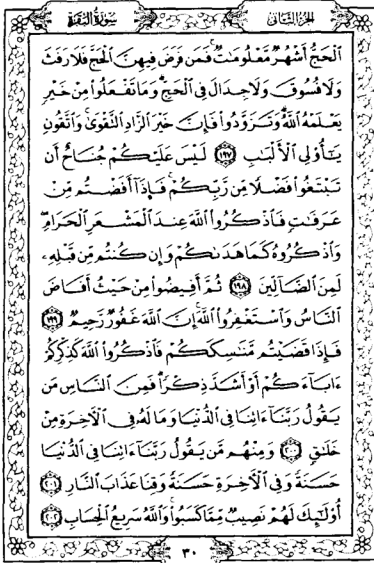 الجزء الثاني
سورة البقرة
ٱلْحَجُّ أَشْهُرٌ مَّعْلُومَٰتٌ فَمَن فَرَضَ فِيهِنَّ ٱلْحَجَّ فَلَا رَفَثَ
وَلَا فُسُوقَ وَلَا جِدَالَ فِي ٱلْحَجِّ وَمَا تَفْعَلُوا۟ مِنْ خَيْرٍ
يَعْلَمْهُ ٱللَّهُ وَتَزَوَّدُوا۟ فَإِنَّ خَيْرَ ٱلزَّادِ ٱلتَّقْوَىٰ وَٱتَّقُونِ
يَٰٓأُو۟لِي ٱلْأَلْبَٰبِ ١٩٧ لَيْسَ عَلَيْكُمْ جُنَاحٌ أَن
تَبْتَغُوا۟ فَضْلًا مِّن رَّبِّكُمْ فَإِذَآ أَفَضْتُم مِّنْ
عَرَفَٰتٍ فَٱذْكُرُوا۟ ٱللَّهَ عِندَ ٱلْمَشْعَرِ ٱلْحَرَامِ
وَٱذْكُرُوهُ كَمَا هَدَىٰكُمْ وَإِن كُنتُم مِّن قَبْلِهِۦ
لَمِنَ ٱلضَّآلِّينَ ١٩٨ ثُمَّ أَفِيضُوا۟ مِنْ حَيْثُ أَفَاضَ
ٱلنَّاسُ وَٱسْتَغْفِرُوا۟ ٱللَّهَ إِنَّ ٱللَّهَ غَفُورٌ رَّحِيمٌ ١٩٩
فَإِذَا قَضَيْتُم مَّنَٰسِكَكُمْ فَٱذْكُرُوا۟ ٱللَّهَ كَذِكْرِكُمْ
ءَابَآءَكُمْ أَوْ أَشَدَّ ذِكْرًا فَمِنَ ٱلنَّاسِ مَن
يَقُولُ رَبَّنَآ ءَاتِنَا فِي ٱلدُّنْيَا وَمَا لَهُۥ فِي ٱلْأَخِرَةِ مِنْ
خَلَٰقٍ ٢٠٠ وَمِنْهُم مَّن يَقُولُ رَبَّنَآ ءَاتِنَا فِي ٱلدُّنْيَا
حَسَنَةً وَفِي ٱلْأَخِرَةِ حَسَنَةً وَقِنَا عَذَابَ ٱلنَّارِ ٢٠١
أُو۟لَٰٓئِكَ لَهُمْ نَصِيبٌ مِّمَّا كَسَبُوا۟ وَٱللَّهُ سَرِيعُ ٱلْحِسَابِ ٢٠٢
٣٠